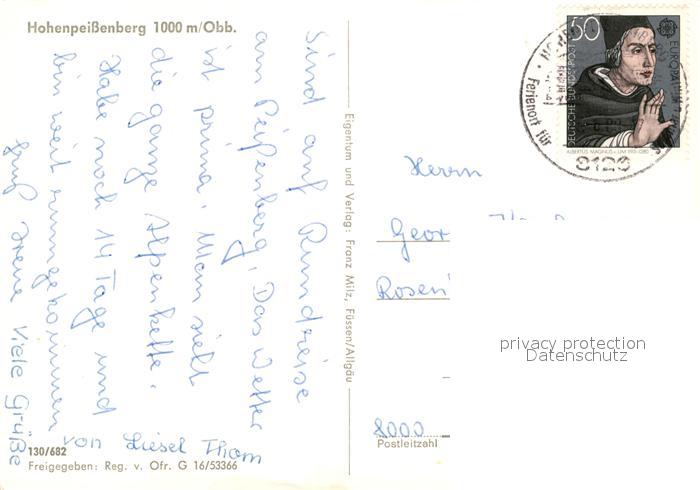 Hohenpeißenberg 1000 m/Obb.
Sind auf Rundreise
am Peißenberg, Das Wetter
ist prima. Man sieht
die ganze Alpenkette.
Habe noch 14 Tage und
bin weit rumgekommen
Gruß Irene Viele Grüße
von Liesel Thom
130/682
Freigegeben: Reg. v. Ofr. G 16/53366
Eigentum und Verlag: Franz Milz, Füssen/Allgäu
50
DEUTSCHE BUNDESPOST
EUROPA
ALBERTUS MAGNUS
Ferienort für
8126
Herrn
Geor
Rosen
privacy protection
Datenschutz
8000
Postleitzahl